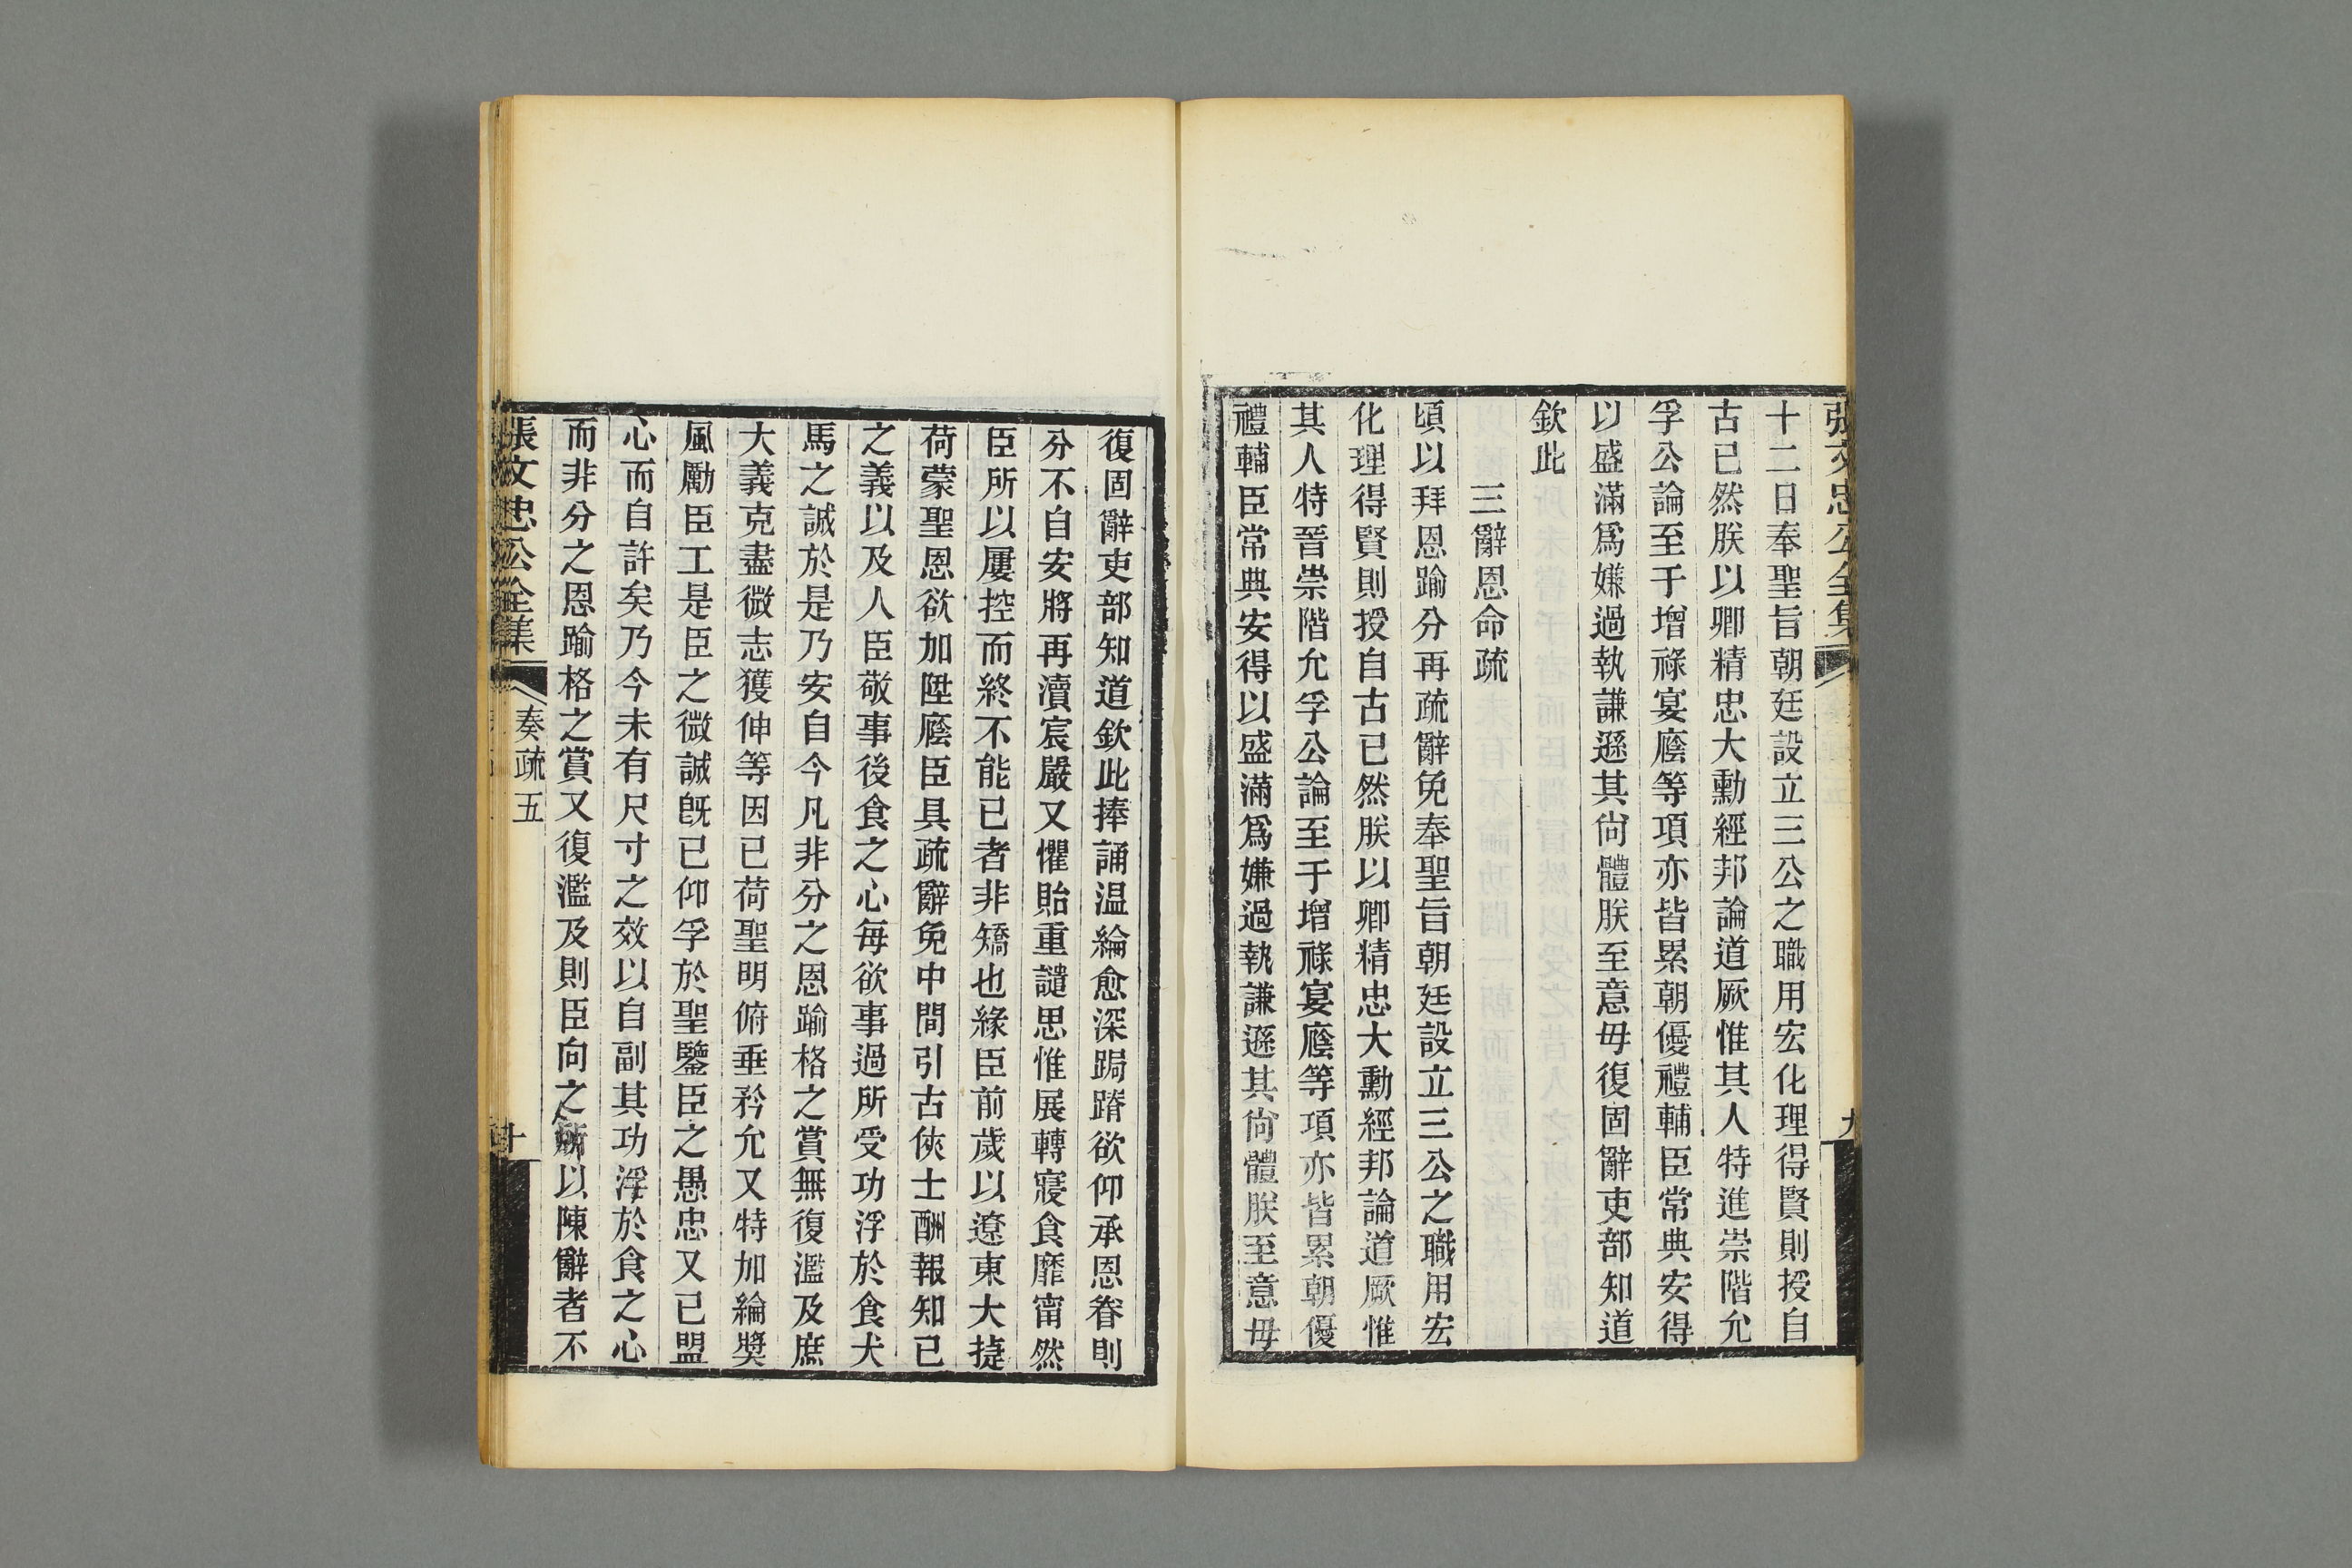 張文忠公全集
九
十二日奉聖旨朝廷設立三公之職用宏化理得賢則授自
古已然朕以卿精忠大勳經邦論道厥惟其人特進崇階允
孚公論至于增祿宴廕等項亦皆累朝優禮輔臣常典安得
以盛滿爲嫌過執謙遜其尙體朕至意毋復固辭吏部知道
欽此
三辭恩命疏
頃以拜恩踰分再疏辭免奉聖旨朝廷設立三公之職用宏
化理得賢則授自古已然朕以卿精忠大勳經邦論道厥惟
其人特晉崇階允孚公論至于增祿宴廕等項亦皆累朝優
禮輔臣常典安得以盛滿爲嫌過執謙遜其尙體朕至意毋
復固辭吏部知道欽此捧誦温綸愈深跼蹐欲仰承恩眷則
分不自安將再瀆宸嚴又懼貽重譴思惟展轉寢食靡甯然
臣所以屢控而終不能已者非矯也緣臣前歲以遼東大捷
荷蒙聖恩欲加陞廕臣具疏辭免中間引古俠士酬報知已
之義以及人臣敬事後食之心每欲事過所受功浮於食犬
馬之誠於是乃安自今凡非分之恩踰格之賞無復濫及庶
大義克盡微志獲伸等因已荷聖明俯垂矜允又特加綸獎
風勵臣工是臣之微誠旣已仰孚於聖鑒臣之愚忠又已盟
心而自許矣乃今未有尺寸之效以自副其功浮於食之心
而非分之恩踰格之賞又復濫及則臣向之所以陳辭者不
張文忠公全集
奏疏五
十